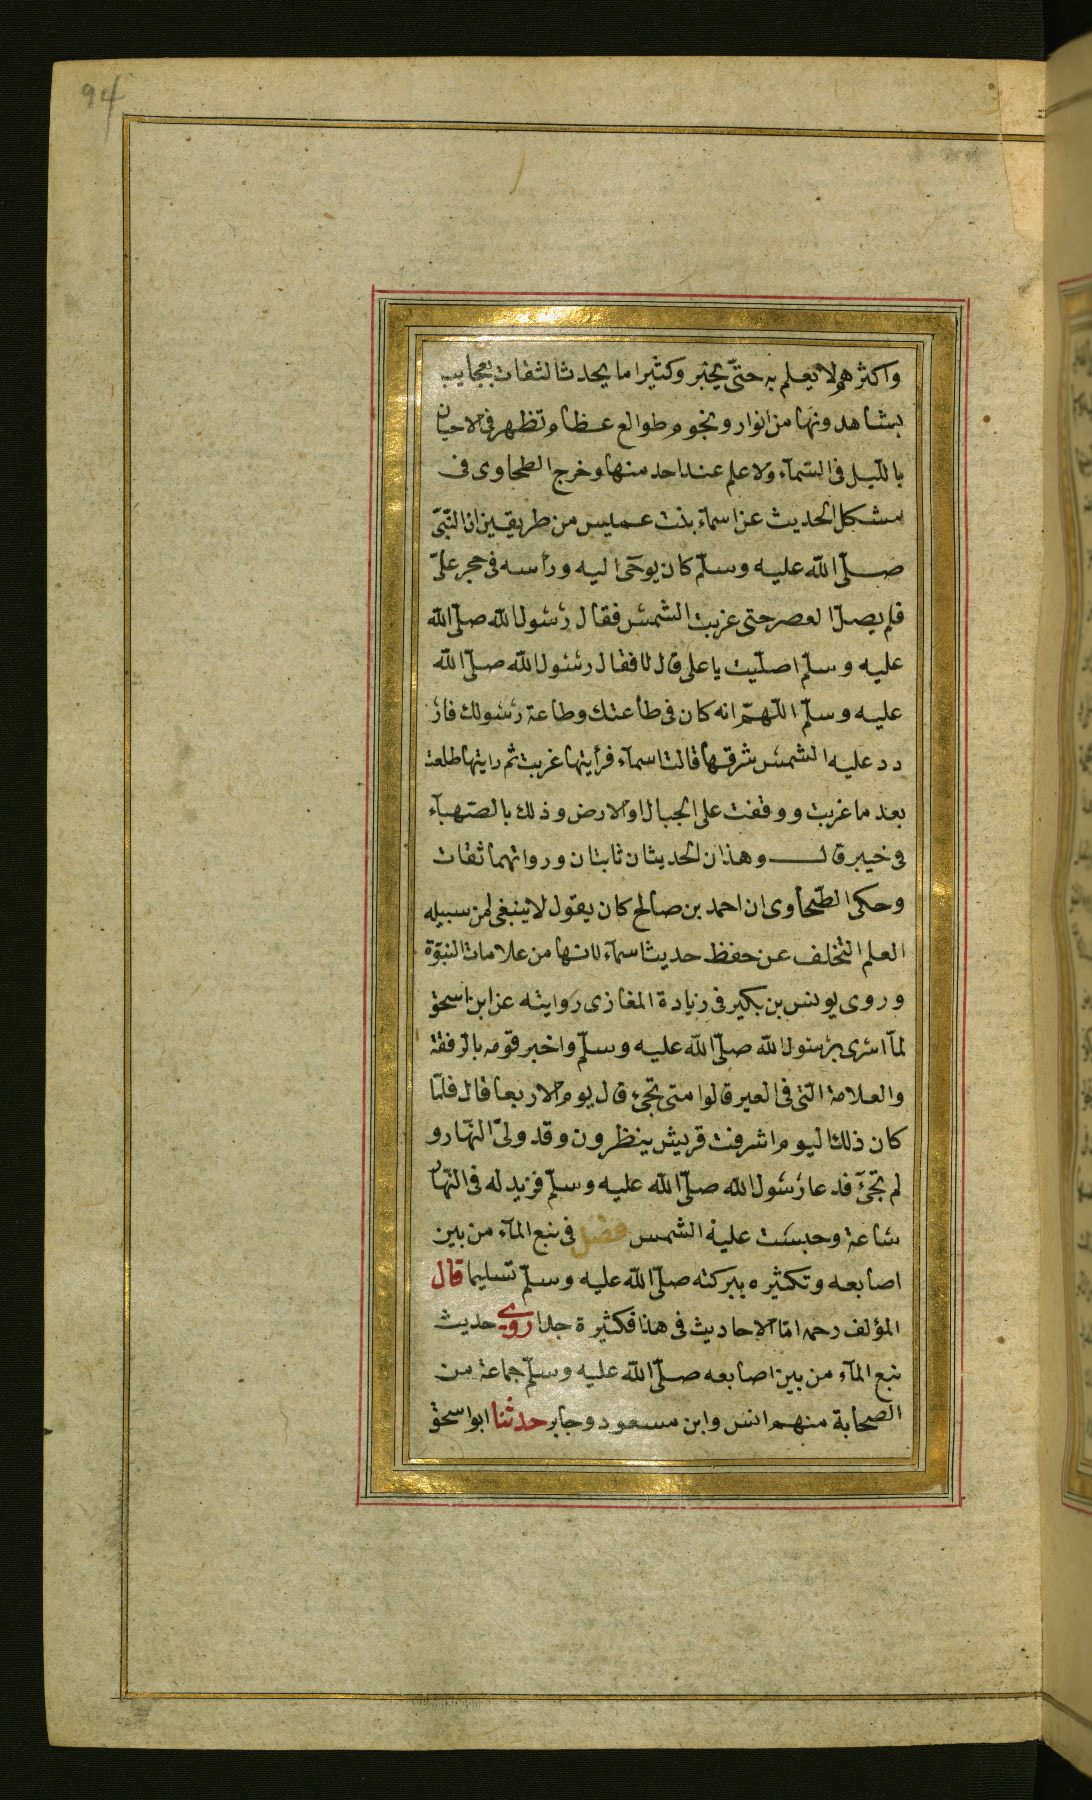 94
واكثرهم لا يعلم به حتّى يخبر وكثيرا ما يحدث الثقات بعجايب
يشاهدونها من انوار ونجوم طوالع عظام تظهر فى الاحيان
بالليل فى السّمآء ولا علم عند احد منها وخرج الطحاوى فى
مشكل الحديث عن اسمآء بنت عميس من طريقين ان النّبىّ
صلّى الله عليه وسلّم كان يوحى اليه ورأسه فى حجر علىّ
فلم يصلّ العصر حتى غربت الشمس فقال رسول الله صلّى الله
عليه وسلّم اصلّيت يا على قال لا فقال رسول الله صلّى الله
عليه وسلّم اللّهمّ انه كان فى طاعتك وطاعة رسولك فار
دد عليه الشمس شرقها قالت اسمآء فرأيتها غربت ثم رايتها طلعت
بعد ما غربت ووقفت على الجبال والارض وذلك بالصّهبآء
فى خيبر قال وهذان الحديثان ثابتان ورواتهما ثقات
وحكى الطّحاوى ان احمد بن صالح كان يقول لا ينبغى لمن سبيله
العلم التخلف عن حفظ حديث اسمآء لانها من علامات النبوّة
وروى يونس بن بكير فى زيادة المغازى روايته عن ابن اسحق
لمّا اسرى برسول الله صلّى الله عليه وسلّم واخبر قومه بالرّفقة
والعلامة التى فى العير قالوا متى تجىء قال يوم الاربعا قال فلمّا
كان ذلك اليوم اشرفت قريش ينظرون وقد ولىّ النّهار و
لم تجىء فدعا رسول الله صلّى الله عليه وسلّم فزيد له فى النّهار
ساعة وحبست عليه الشمس فصل فى نبع المآء من بين
اصابعه وتكثيره ببركته صلّى الله عليه وسلّم تسليما قال
المؤلف رحمه امّا الاحاديث فى هذا فكثيرة جدا روى حديث
نبع المآء من بين اصابعه صلّى الله عليه وسلّم جماعة من
الصحابة منهم انس وابن مسعود وجابر حدثنا ابو اسحق